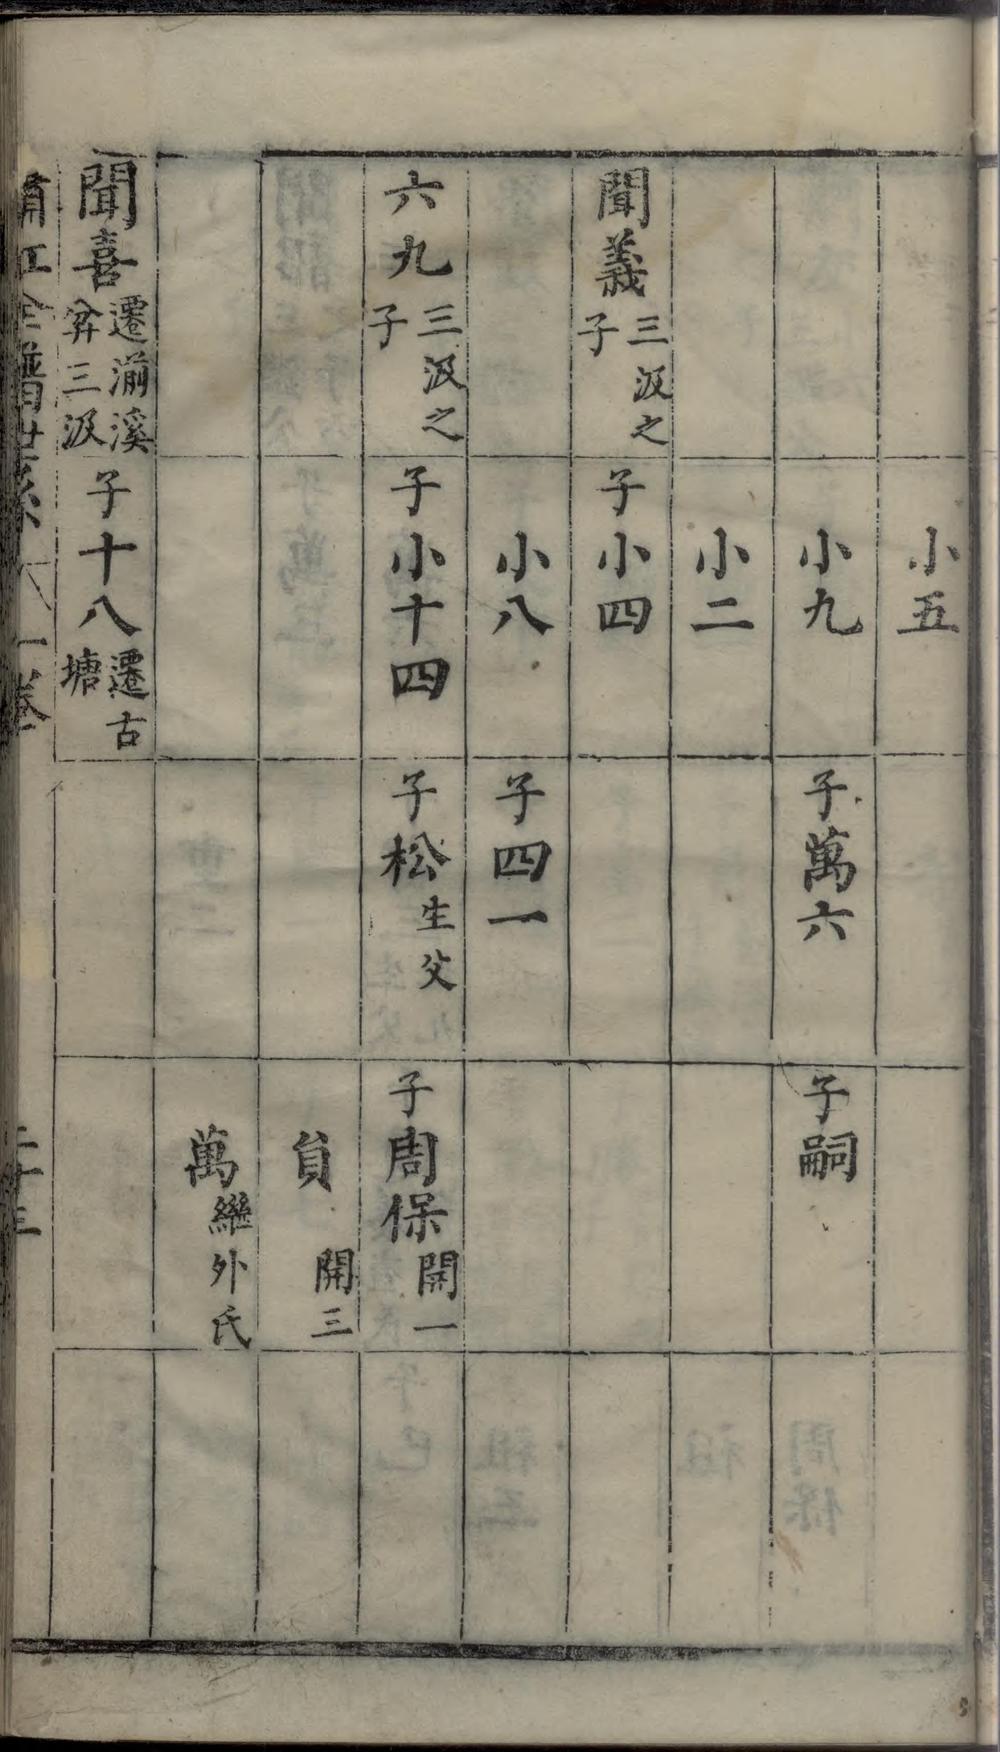 小五
小九
子萬六
子嗣
小二
聞義
三汲之
子
子小四
小八
子四一
六九
三汲之
子
子小十四
子松
生父
子周保
開一
員
開三
萬
繼外氏
聞喜
遷湔溪
弅三汲
子十八
遷古
塘
蕭江全譜世系